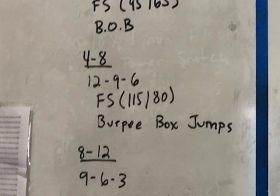 FS (95/65)
B.O.B
4-8
12-9-6
FS (115/80)
Burpee Box Jumps
8-12
9-6-3